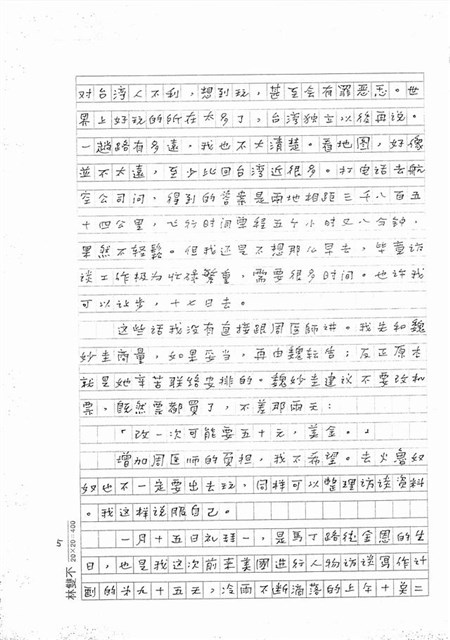 对台湾人不好，想到玩，甚至会有罪恶感。世
界上好玩的地方太多了，台湾独立以後再说。
一趟路有多遠，我也不太清楚。看地图，好像
並不太遠，至少比回台湾近很多。打电话去航
空公司问，得到的答案是兩地相距三千八百五
十四公里，飞行时间單程五个小时又八分钟，
果然不轻鬆。但我还是不想那么早去，毕竟访
谈工作极为忙碌繁重，需要很多时间。也许我
可以让步，十七日去。
这些话我没有直接跟周医師讲。我先和魏
妙圭商量，如果妥当，再由魏转告；反正原本
就是她联络安排的。魏妙圭建议不要改机
票，既然票都買了，不差那兩天：
「改一次可能要五十元，美金。」
增加周医師的負担，我不希望。去火鲁奴
奴也不一定要出去玩，同样可以整理访谈資料
。我这样说服自己。
一月十五日礼拜一，是馬丁路德金恩的生
日，也是我这次前来美國進行人物访谈写作计
的第九十五天；冷雨不断滴落的上午十点二
林雙不 20×20=400